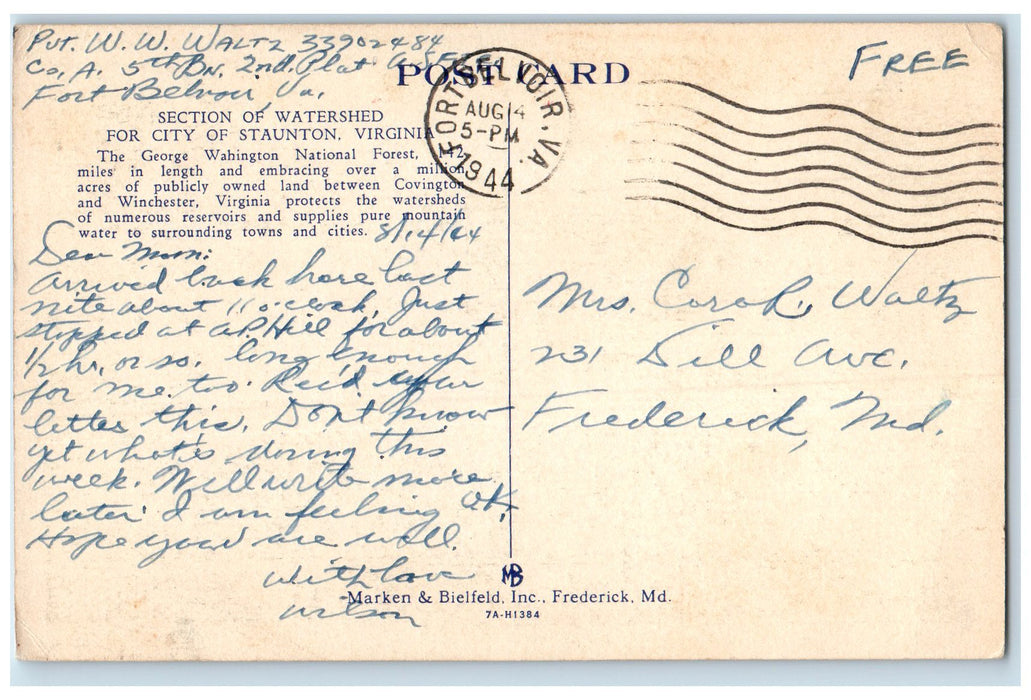 Pvt. W. W. WALTZ 33902484
Co. A. 5th Bn. 2nd. Plat
Fort Belvoir, Va.
POST CARD
FORT BELVOIR. VA.
AUG 14
5-PM
1944
FREE
SECTION OF WATERSHED
FOR CITY OF STAUNTON, VIRGINIA
The George Wahington National Forest,
miles in length and embracing over a million
acres of publicly owned land between Covington
and Winchester, Virginia protects the watersheds
of numerous reservoirs and supplies pure mountain
water to surrounding towns and cities. 8/14/44
Dear Mom:
Arrived back here last
nite about 11 o'clock, Just
stopped at A.P. Hill for about
1/2 hr, or so. long enough
for me too. Rec'd your
letter this. Don't know
yet what's doing this
week. Will write more
later. I am feeling O.K.
Hope you are well.
With love
Wilson
Mrs. Cora R. Waltz
231 Dill Ave.
Frederick, Md.
MB
Marken & Bielfeld, Inc., Frederick, Md.
7A-H1384